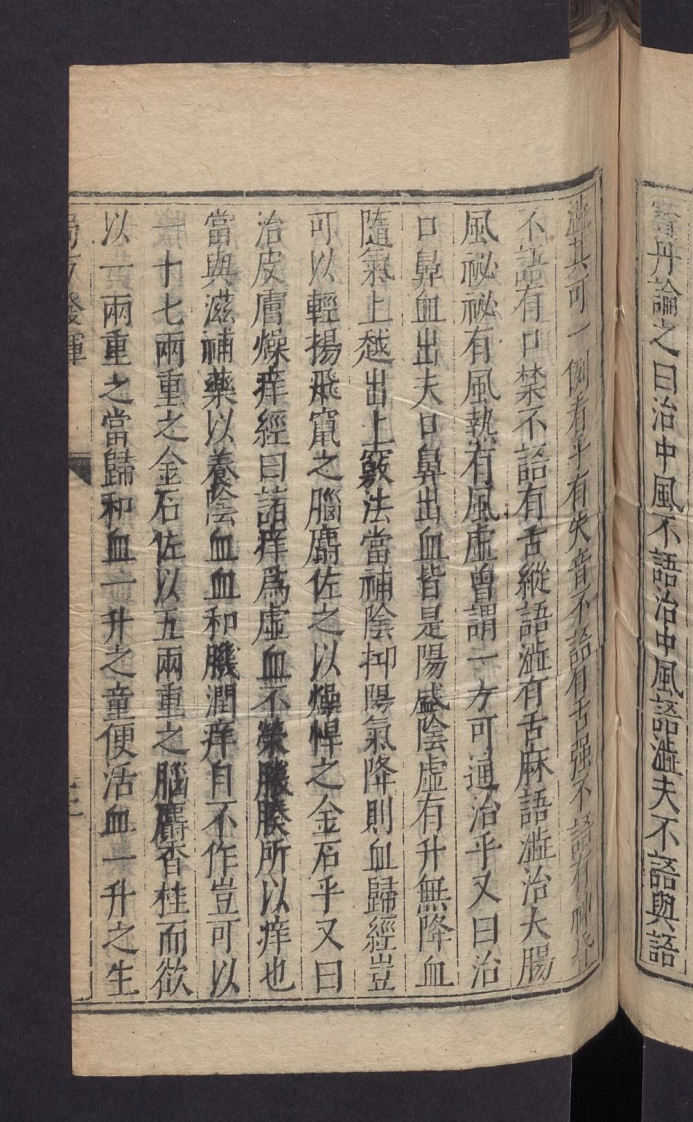 寳丹論之曰治中風不語治中風語澁夫不語與語
澁其可一例看乎有失音不語有舌强不語有神昏
不語有口禁不語有舌縱語澁有舌麻語澁治大腸
風祕祕有風熱有風虛曾謂一方可通治乎又曰治
口鼻血出夫口鼻出血皆是陽盛陰虛有升無降血
隨氣上越出上竅法當補陰抑陽氣降則血歸經豈
可以輕揚飛竄之腦麝佐之以燥悍之金石乎又曰
治皮膚燥痒經曰諸痒爲虛血不榮肌腠所以痒也
當與滋補藥以養陰血血和肌潤痒自不作豈可以
一十七兩重之金石佐以五兩重之腦麝香桂而欲
以一兩重之當歸和血一升之童便活血一升之生
局方發揮